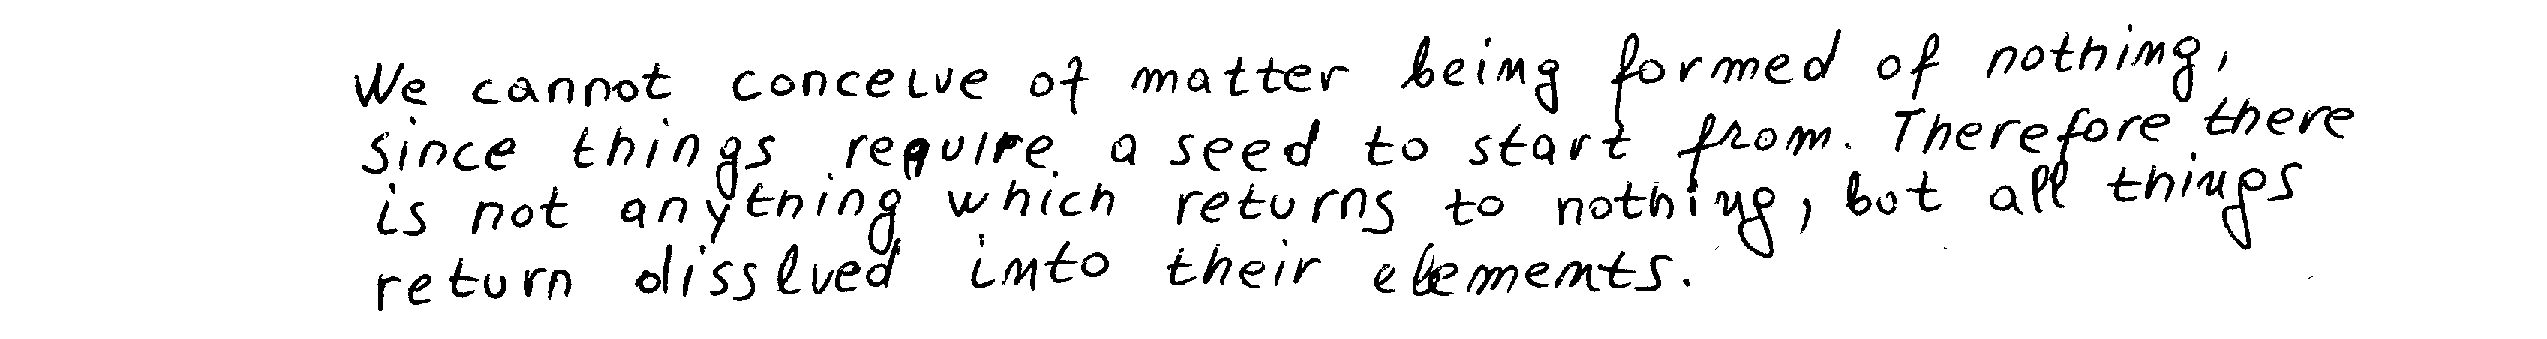 We cannot conceive of matter being formed of nothing,
since things require a seed to start from. Therefore there
is not anything which returns to nothing, but all things
return disslved into their elements.